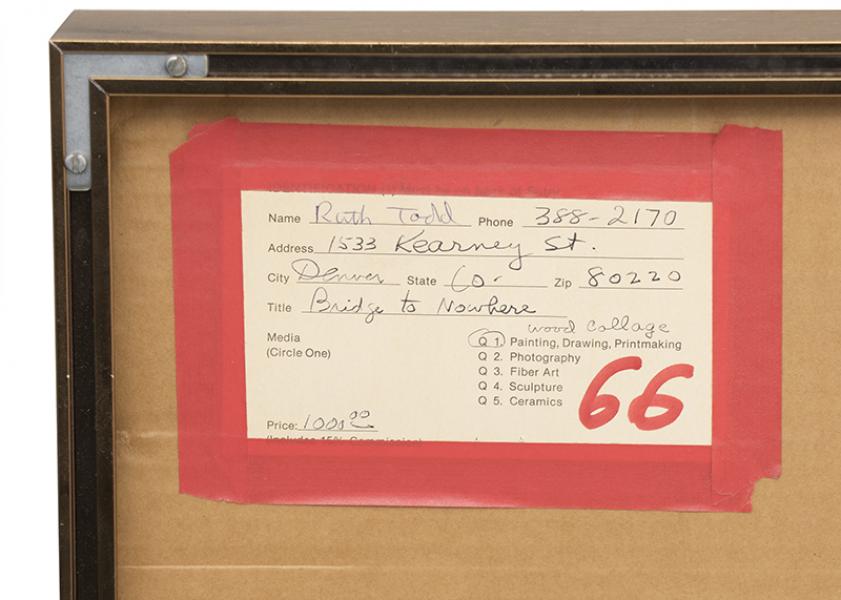 IDENTIFICATION
Name Ruth Todd Phone 388-2170
Address 1533 Kearney St.
City Denver State Co. Zip 80220
Title Bridge to Nowhere
wood collage
Media
(Circle One)
Q 1. Painting, Drawing, Printmaking
Q 2. Photography
Q 3. Fiber Art
Q 4. Sculpture
Q 5. Ceramics
66
Price: 1000.00
(Includes 15% Commission)